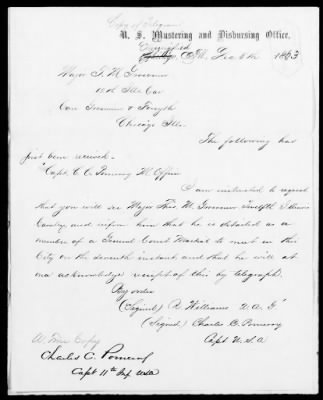 Copy of Telegram
U. S. Mustering and Disbursing Office,
Springfield Ills. Dec 6th 1863
Major T. M. Grosvenor
12th Ills Cav
Care Grosvenor & Forsyth
Chicago Ills.
The following has
just been received.
"Capt. C. C. Pomeroy M. Officer
I am instructed to request
that you will see Major Thos. M. Grosvenor Twelfth Illinois
Cavalry and inform him that he is detailed as a
member of a General Court Martial to meet in this
City on the seventh instant and that he will at
once acknowledge receipt of this by telegraph.
By order
(Signed) R. Williams A. A. G"
(Signed) Charles C. Pomeroy
Capt U.S.A
A True Copy
Charles C. Pomeroy
Capt 11th Inf USA